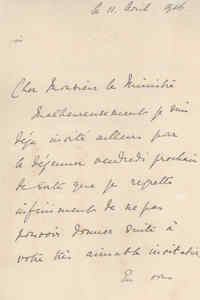 le 11 Avril 1916
Cher Monsieur le Ministre
Malheureusement je suis
déja invité ailleurs pour
le déjeuner vendredi prochain
de sorte que je regrette
infiniment de ne pas
pouvoir donner suite à
votre très aimable invitation
En vous